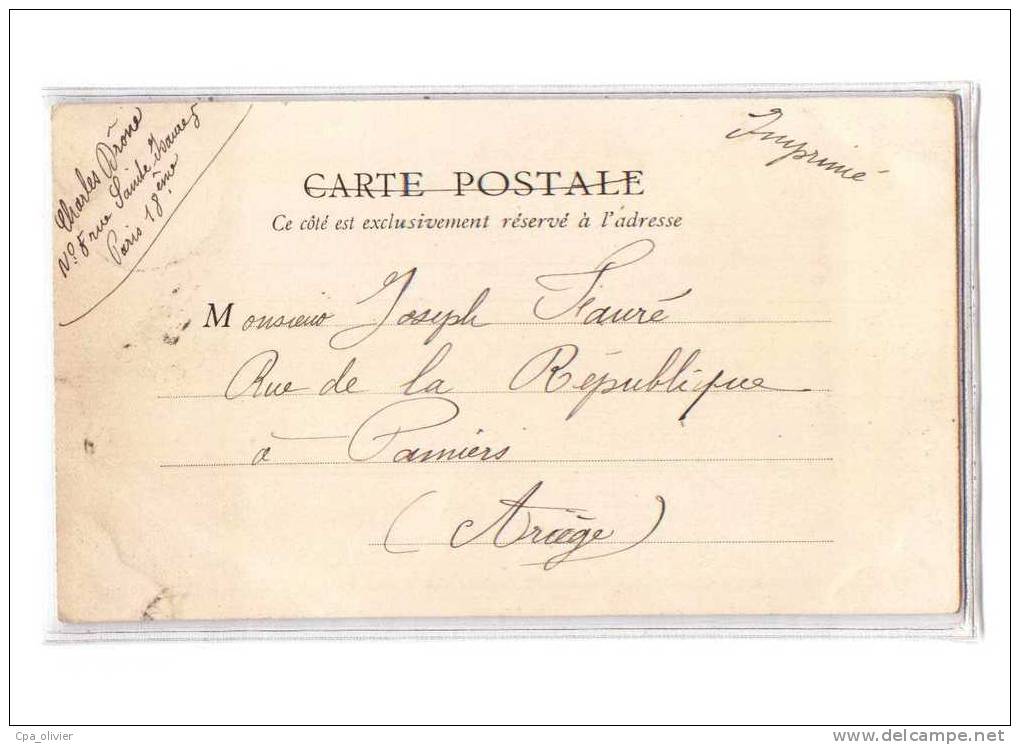 Charles Brone
N° 8 rue Sainte Isaure
Paris 18ème
Imprimé
CARTE POSTALE
Ce côté est exclusivement réservé à l'adresse
Monsieur Joseph Fauré
Rue de la République
à Pamiers
(Ariège)
Cpa_olivier
www.delcampe.net